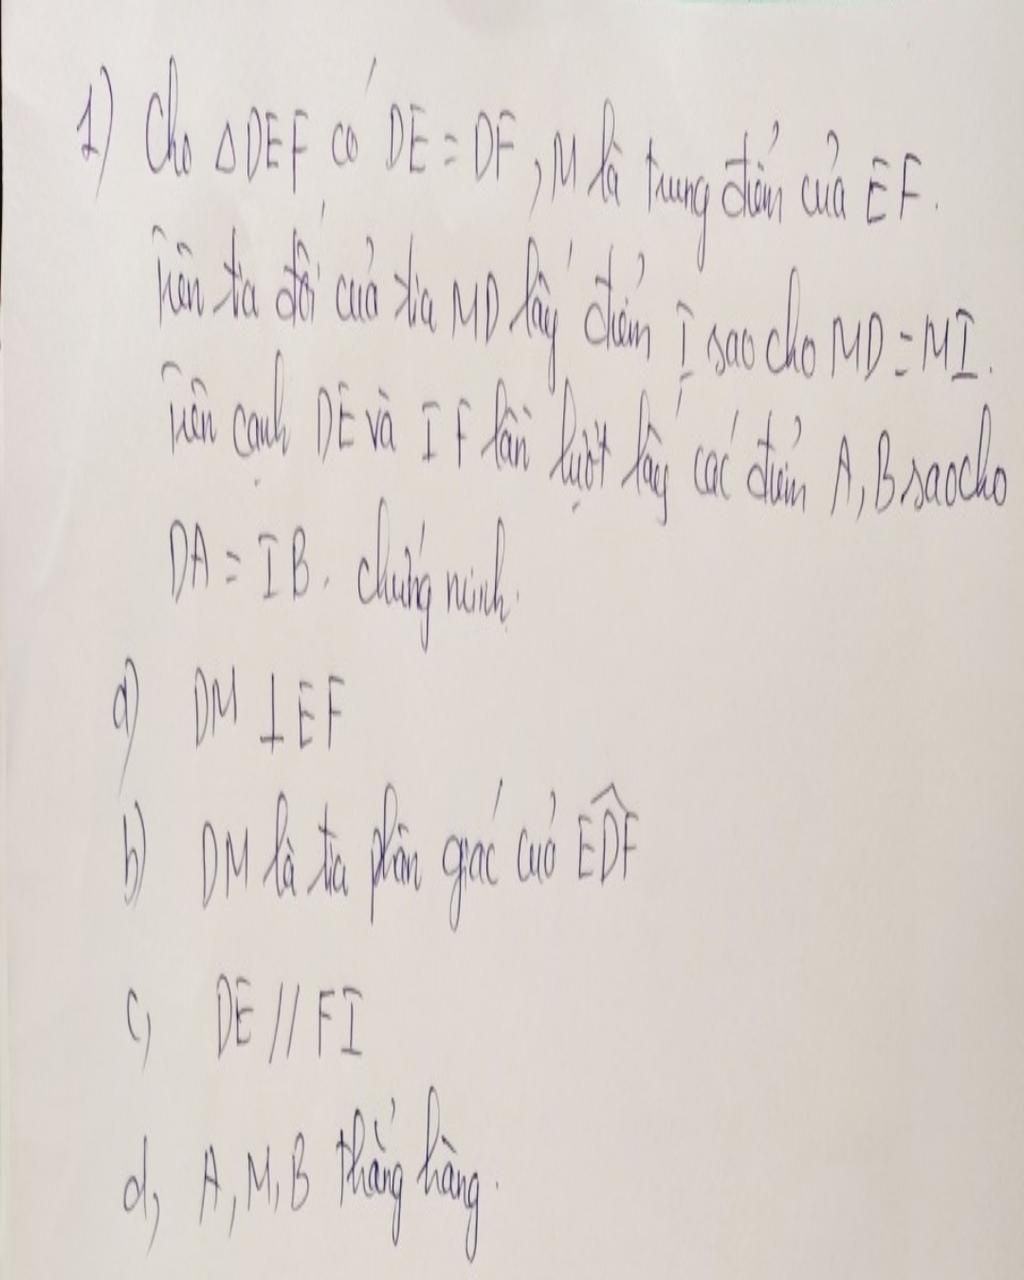 1) Cho △DEF có DE = DF, M là trung điểm của EF.
Trên tia đối của tia MD lấy điểm I sao cho MD = MI.
Trên cạnh DE và IF lần lượt lấy các điểm A, B sao cho
DA = IB. chứng minh.
a) DM ⊥ EF
b) DM là tia phân giác của \widehat{EDF}
c, DE // FI
d, A, M, B thẳng hàng.